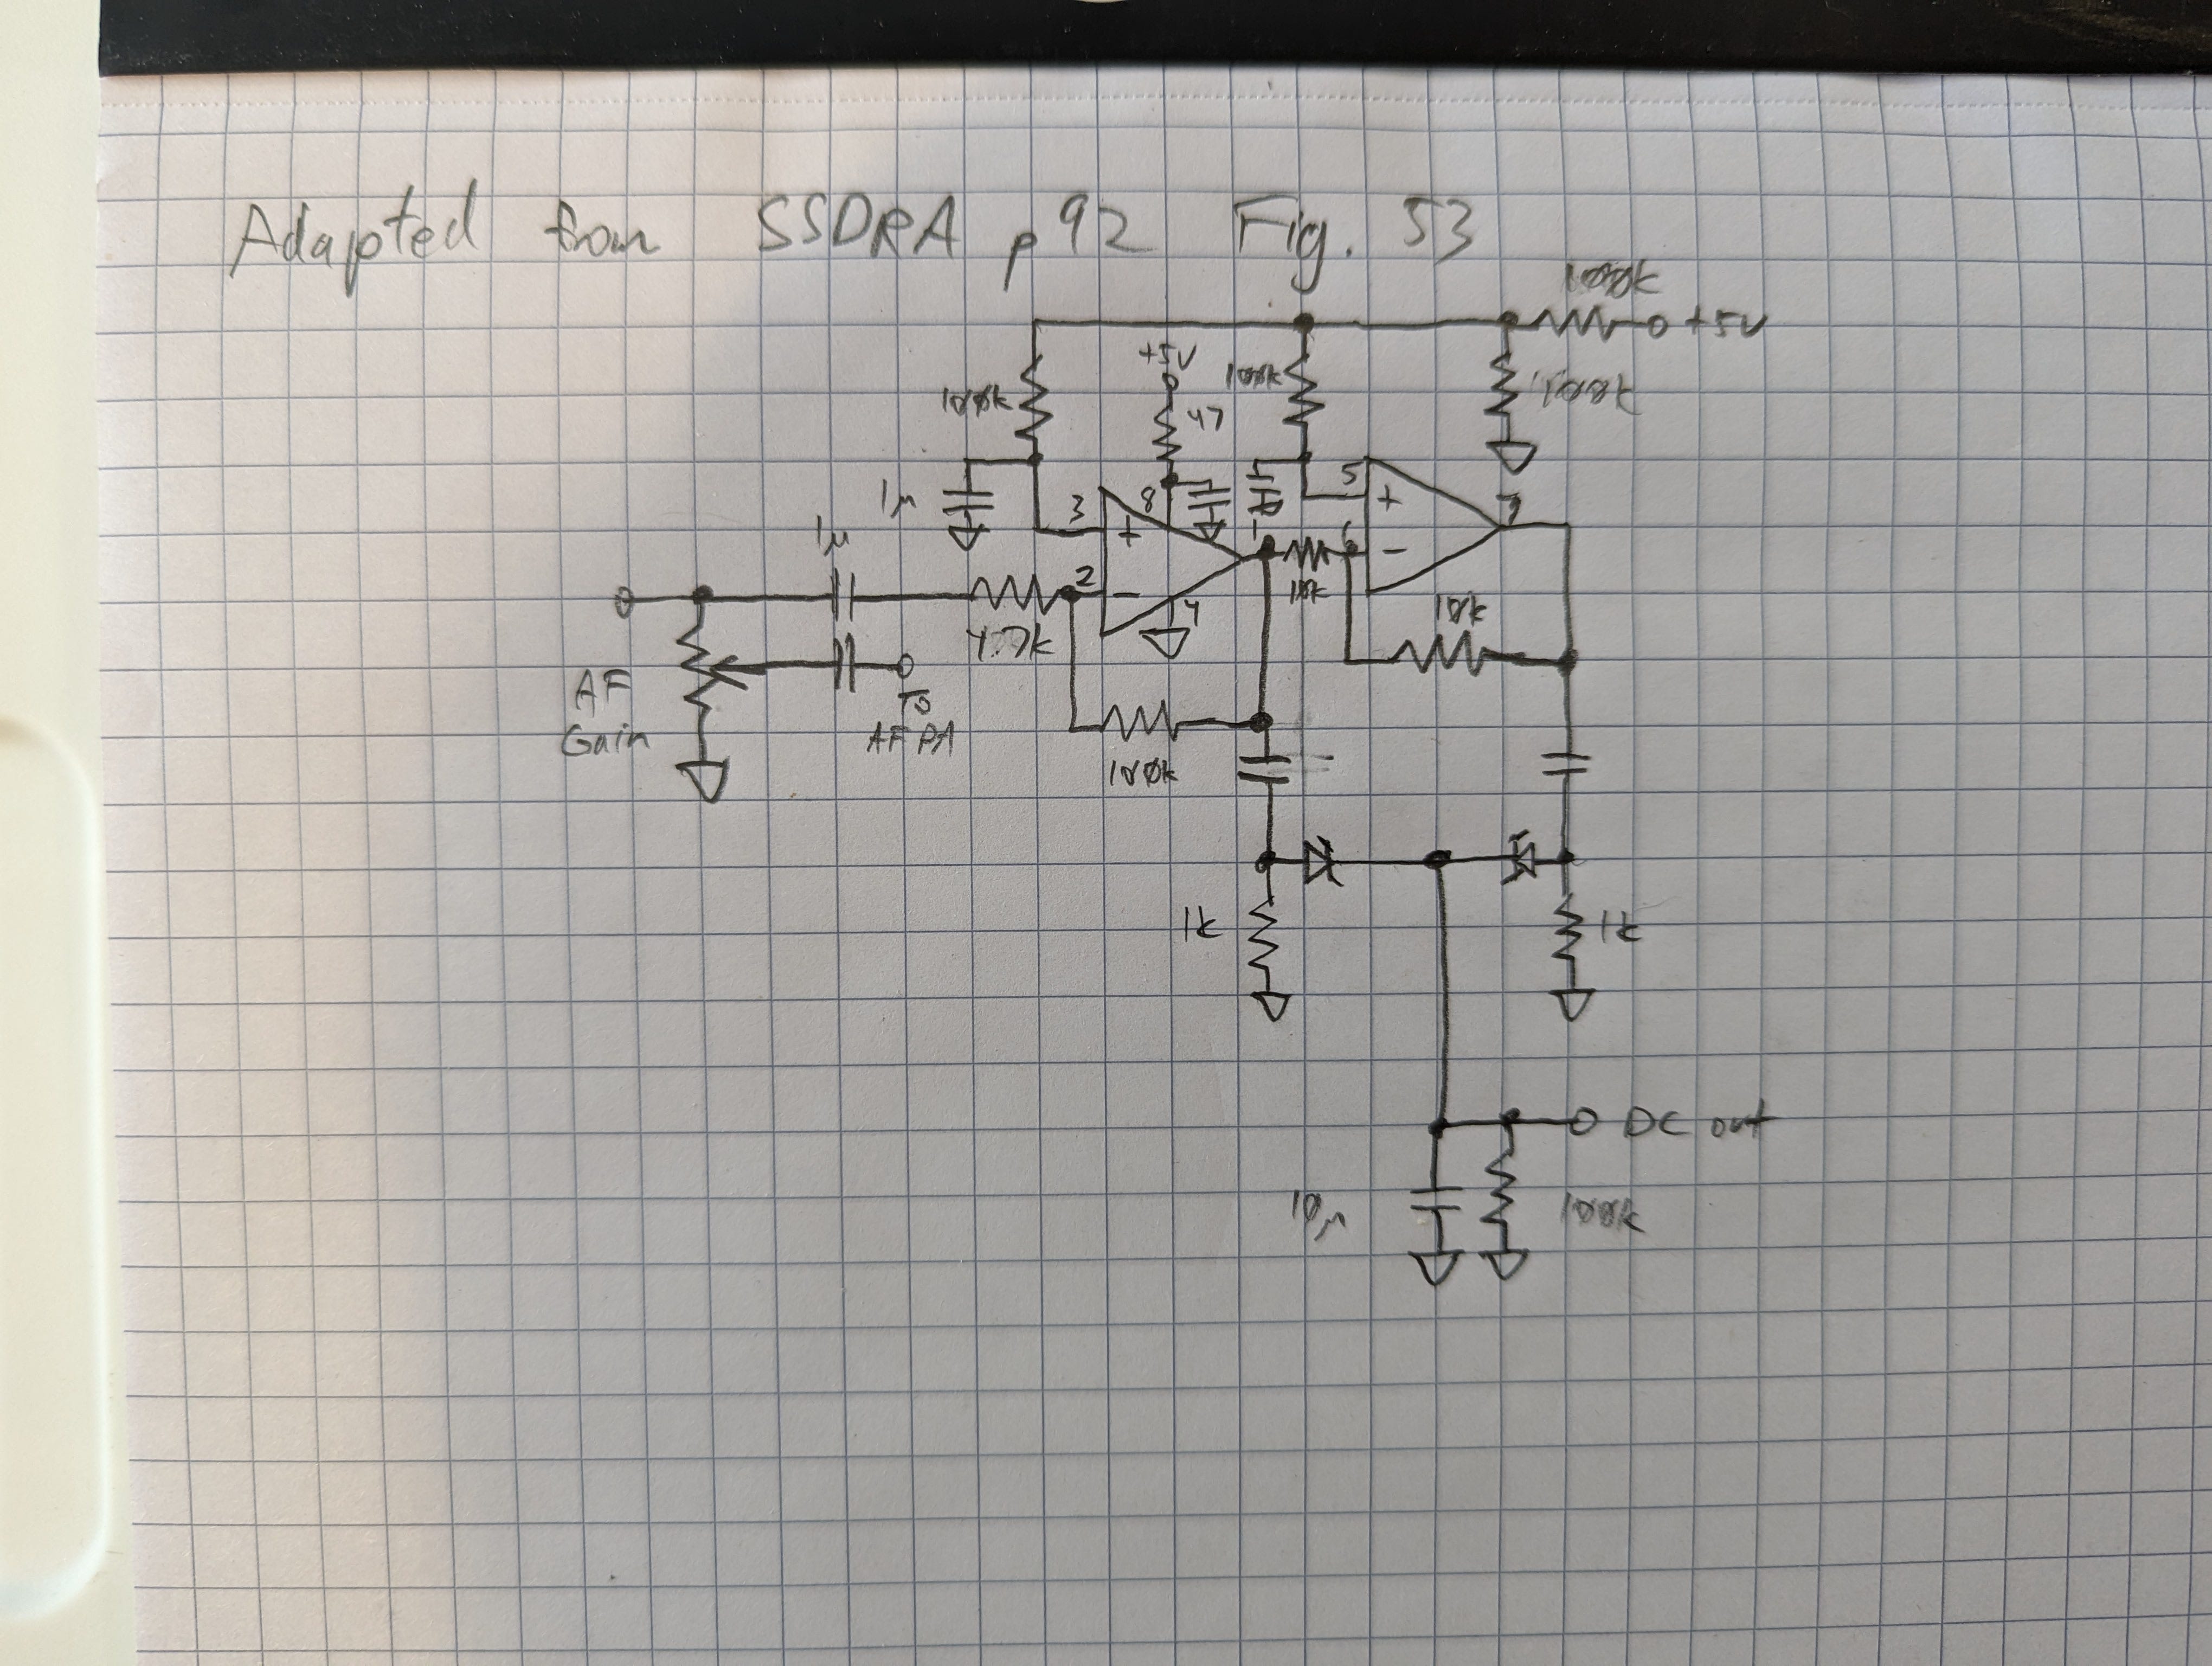 Adapted from SSDRA p92 Fig. 53
100k
+5V
+5V
100k
100k
47
100k
1μ
3
8
5
7
1μ
1
6
+
+
2
-
-
4.7k
4
10k
10k
AF
Gain
To
AF PA
100k
1k
1k
DC out
10μ
100k